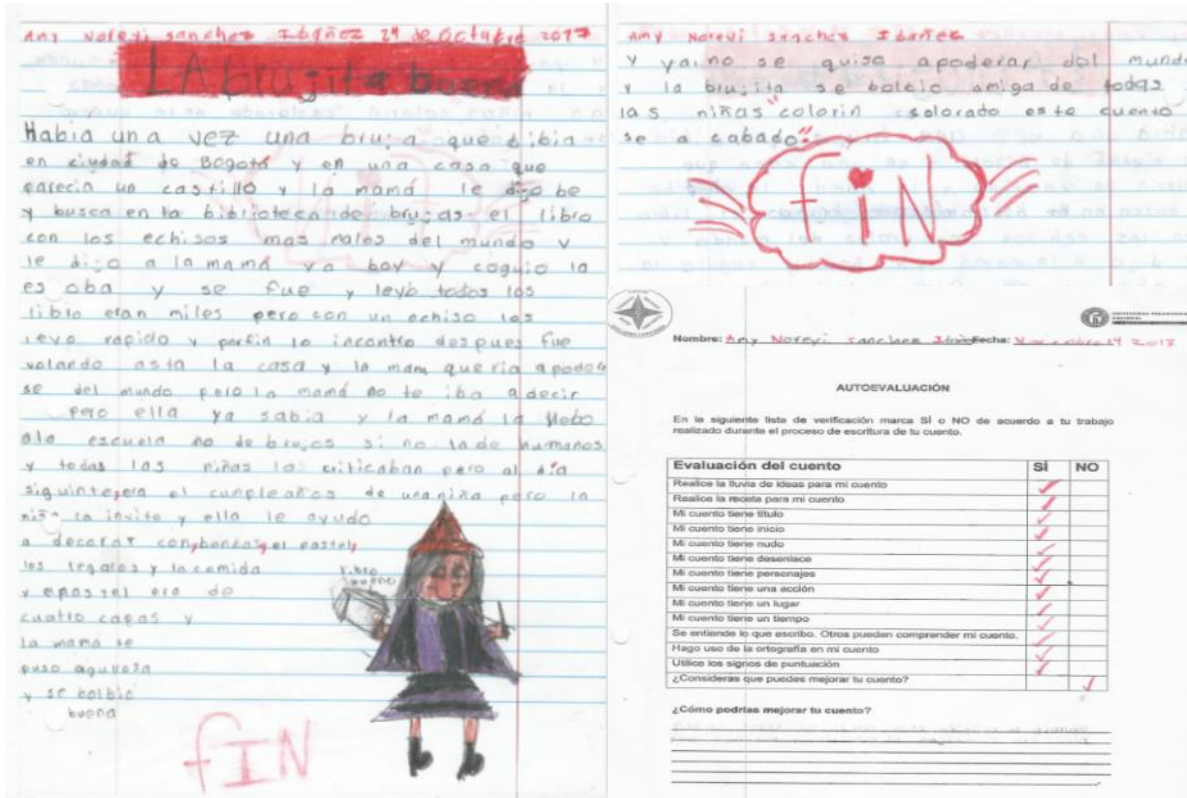 Any Noreyi sanchez Ibáñez 24 de Octubre 2017
LA brujita buena
Habia una vez una bruja que bibia
en ciudad de Bogotá y en una casa que
parecia un castillo y la mamá le dijo be
y busca en la biblioteca de brujas el libro
con los echisos mas males del mundo y
le dijo a la mamá ya boy y coguio la
es oba y se fue y leyó todos los
libro eran miles pero con un echiso los
leyo rapido y porfin lo incontro despues fue
volando asta la casa y la mama queria apoder
se del mundo pero la mamá no le iba a decir
pero ella ya sabia y la mamá la llebo
ala escuela no de brujos si no la de humanos
y todas las niñas las criticaban pero al día
siguinte, era el cunpleaños de una niña pero la
niña la invito y ella le ayudo
a decorar con, bonbas, el pastel,
los regalos y la comida
y epastel era de
cuatro capas y
la mama se
puso
y se bolbio
buena
libro
bueno
fIN
Amy Noreyi sanchez Ibañez
y ya no se quiso apoderar del mundo
y la brujita se bolbio amiga de todas
las niñas "colorin colorado este cuento
se a cabado"
fIN
Nombre: Any Noreyi sanchez Fecha: Noviembre 14 2017
AUTOEVALUACIÓN
En la siguiente lista de verificación marca SÍ o NO de acuerdo a tu trabajo
realizado durante el proceso de escritura de tu cuento.
Evaluación del cuento SÍ NO
Realice la lluvia de ideas para mi cuento
Realice la receta para mi cuento
Mi cuento tiene título
Mi cuento tiene inicio
Mi cuento tiene nudo
Mi cuento tiene desenlace
Mi cuento tiene personajes
Mi cuento tiene una acción
Mi cuento tiene un lugar
Mi cuento tiene un tiempo
Se entiende lo que escribo. Otros pueden comprender mi cuento.
Hago uso de la ortografía en mi cuento
Utilice los signos de puntuación
¿Consideras que puedes mejorar tu cuento?
¿Cómo podrías mejorar tu cuento?